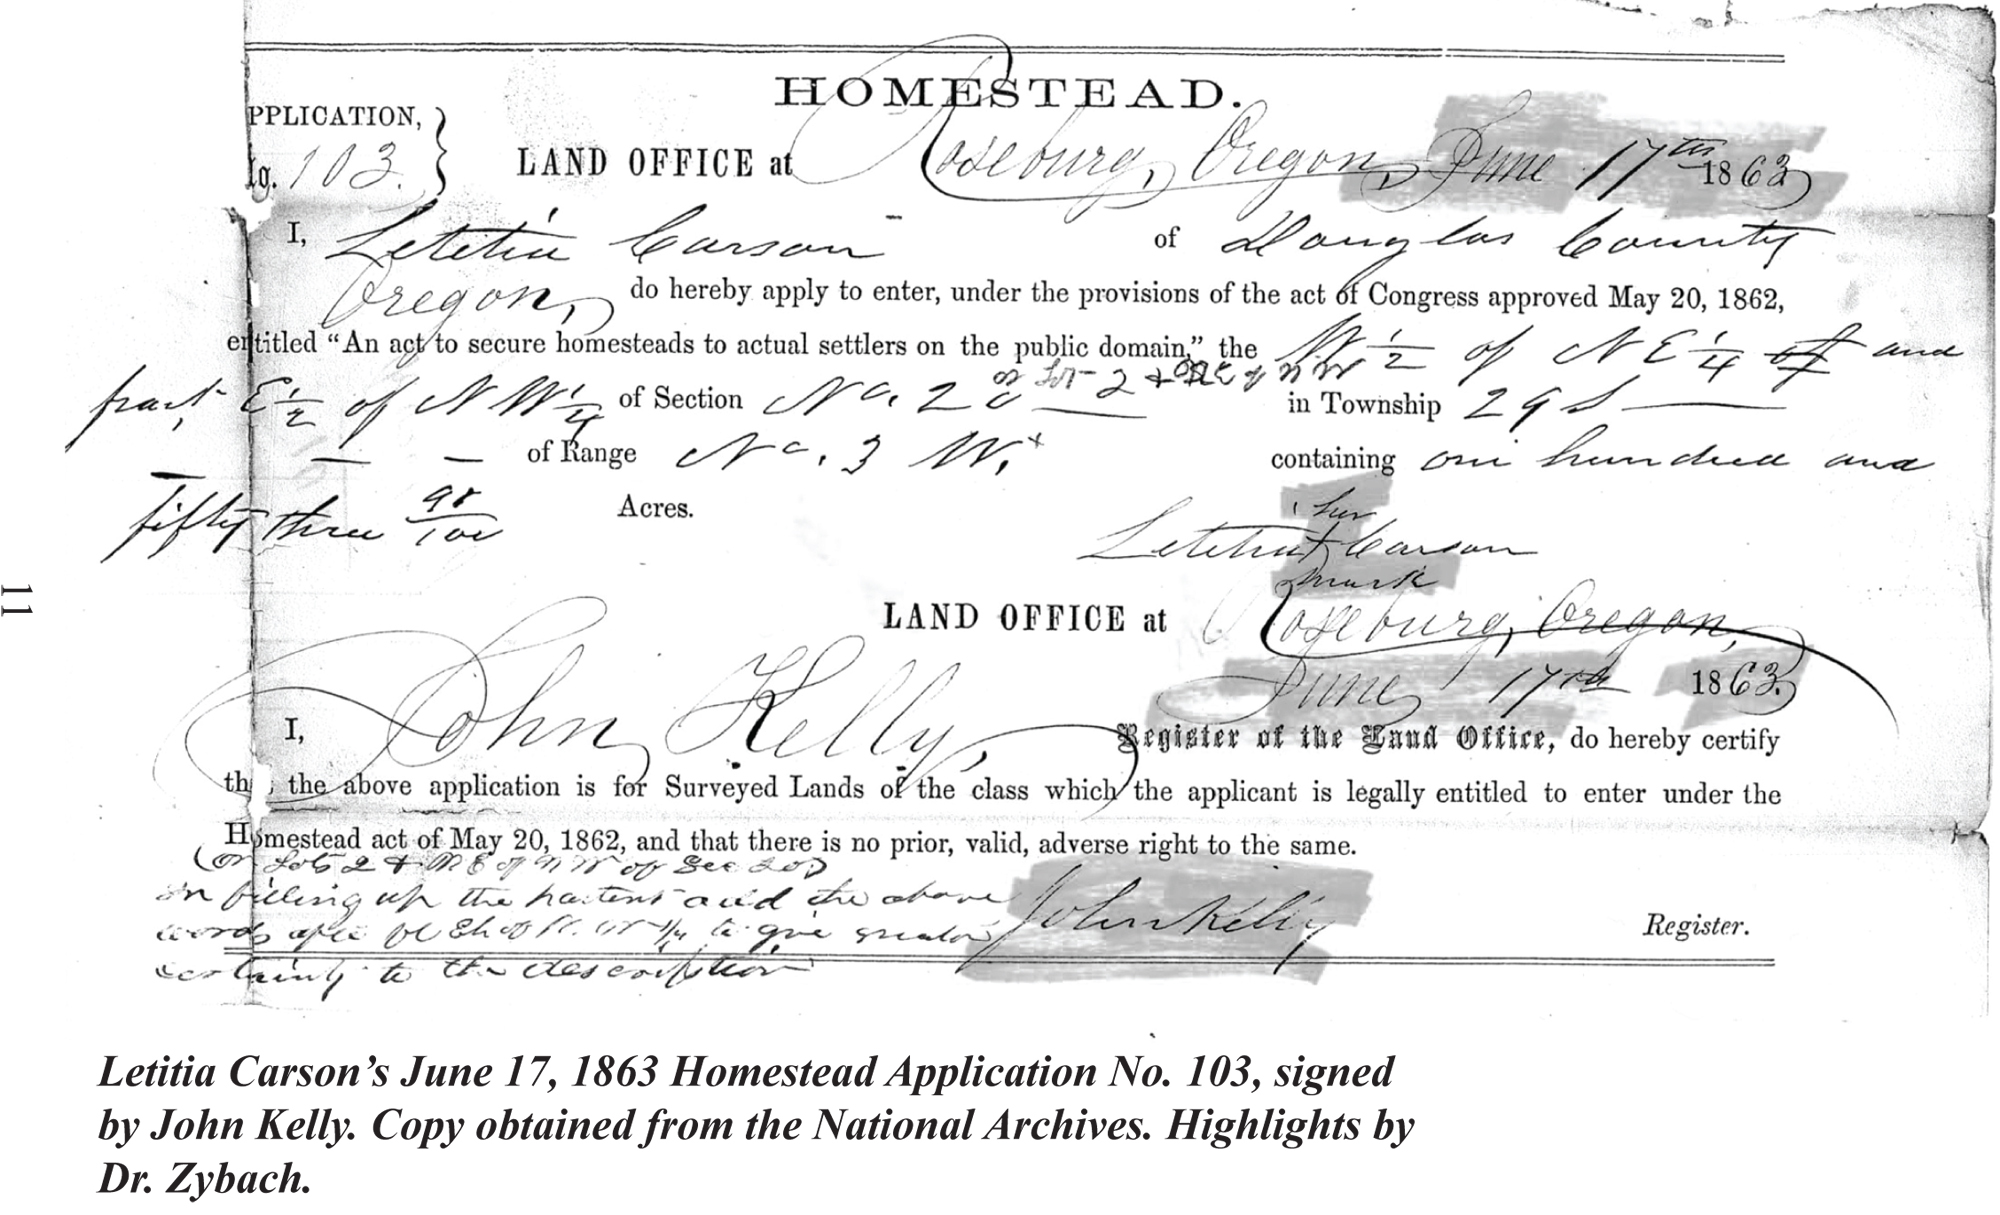 HOMESTEAD.
PPLICATION,
103.
LAND OFFICE at Roseburg, Oregon, June 17th 1863
I, Letitia Carson of Douglas County
Oregon, do hereby apply to enter, under the provisions of the act of Congress approved May 20, 1862,
entitled “An act to secure homesteads to actual settlers on the public domain,” the W 1/2 of NE 1/4 of and
or Lot 2 + NE of NW
fract, E 1/2 of NW 1/4 of Section No. 20 in Township 29 S
of Range No. 3 W. containing one hundred and
fifty three 98/100 Acres.
her
Letitia + Carson
mark
LAND OFFICE at Roseburg, Oregon,
June 17th 1863.
I, John Kelly, Register of the Land Office, do hereby certify
the above application is for Surveyed Lands of the class which the applicant is legally entitled to enter under the
Homestead act of May 20, 1862, and that there is no prior, valid, adverse right to the same.
(or Lots 2 + NE of NW of Sec 20)
in filling up the patent add the above
words after to give greater
certainty to the description
John Kelly Register.
11
Letitia Carson’s June 17, 1863 Homestead Application No. 103, signed
by John Kelly. Copy obtained from the National Archives. Highlights by
Dr. Zybach.